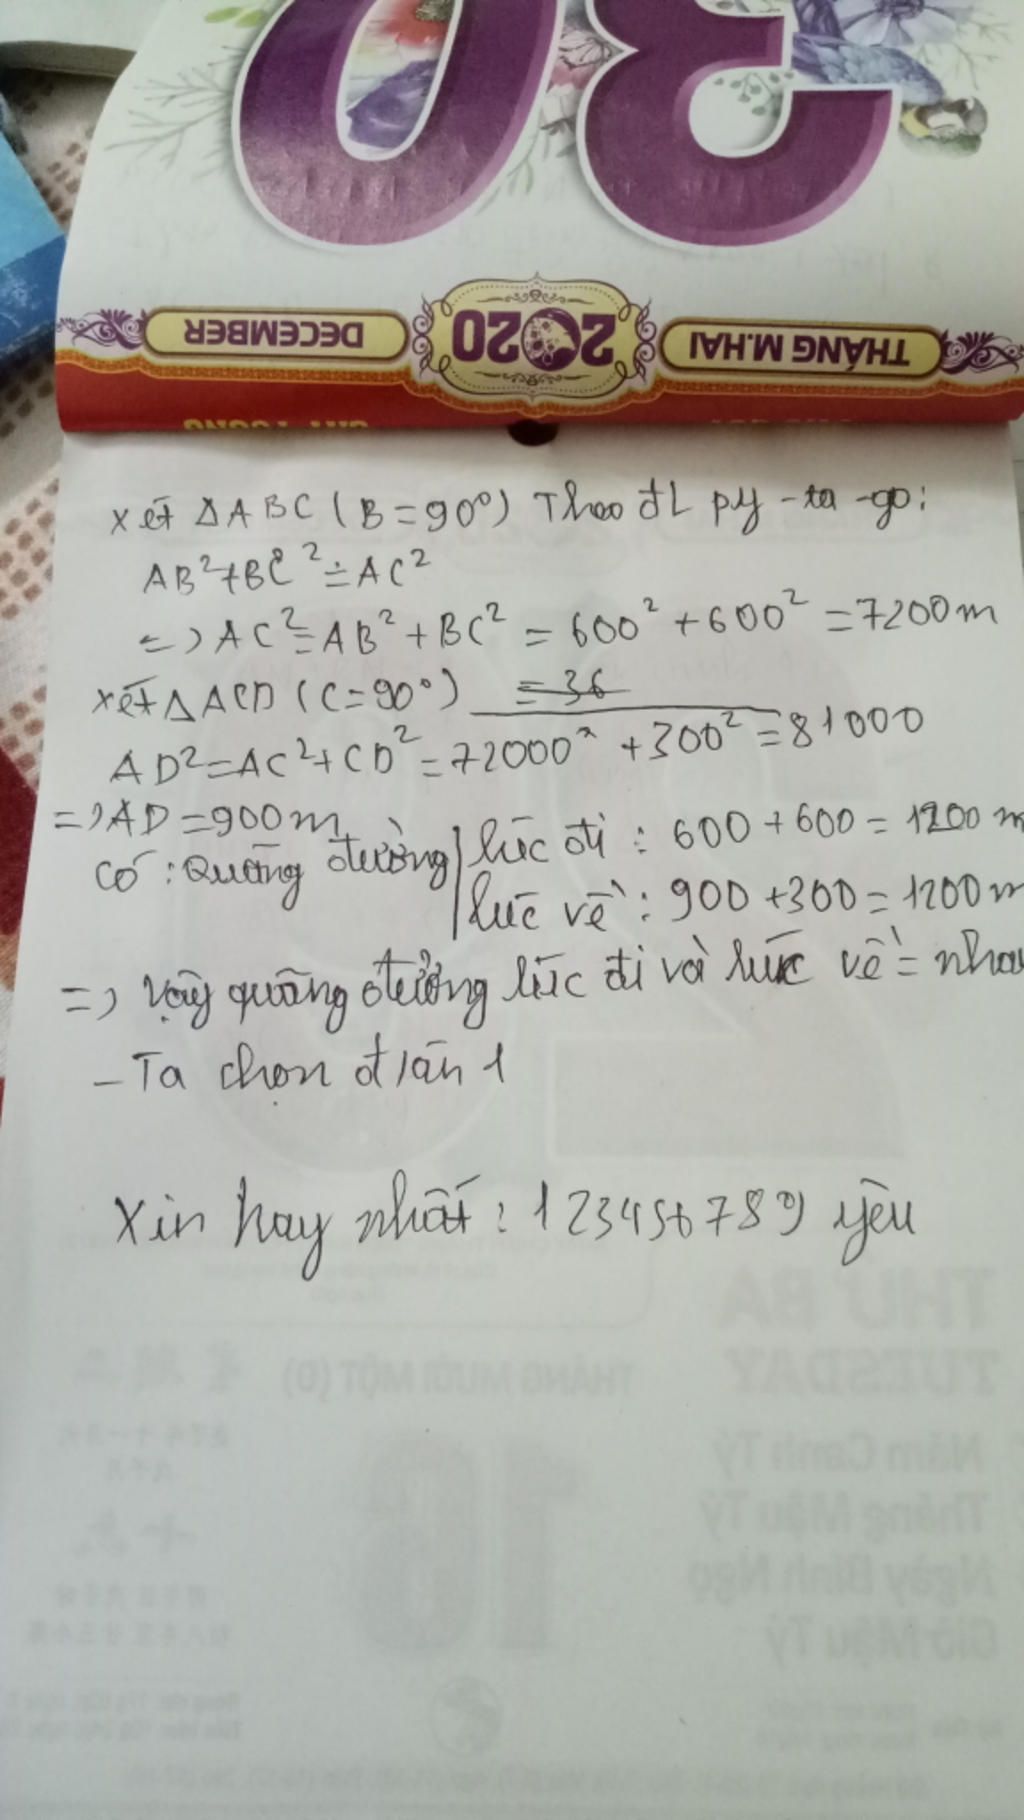 30
THÁNG M.HAI 2020 DECEMBER
xét ΔABC (B=90°) Theo đL py-ta-go:
AB²+BC²=AC²
=> AC²=AB²+BC² = 600²+600² =7200m
xét ΔACD (C=90°) =36
AD²=AC²+CD²=72000²+300²=81000
=> AD=900m
có: Quãng đường lúc đi: 600+600=1200m
lúc về: 900+300=1200m
=> Vậy quãng đường lúc đi và lúc về = nhau
- Ta chọn đ làn 1
Xin hay nhất: 123456789 yêu
THỨ BA
TUESDAY
THÁNG MƯỜI MỘT (Đ)
10
Năm Canh Tý
Tháng Mậu Tý
Ngày Bính Ngọ
Giờ Mậu Tý